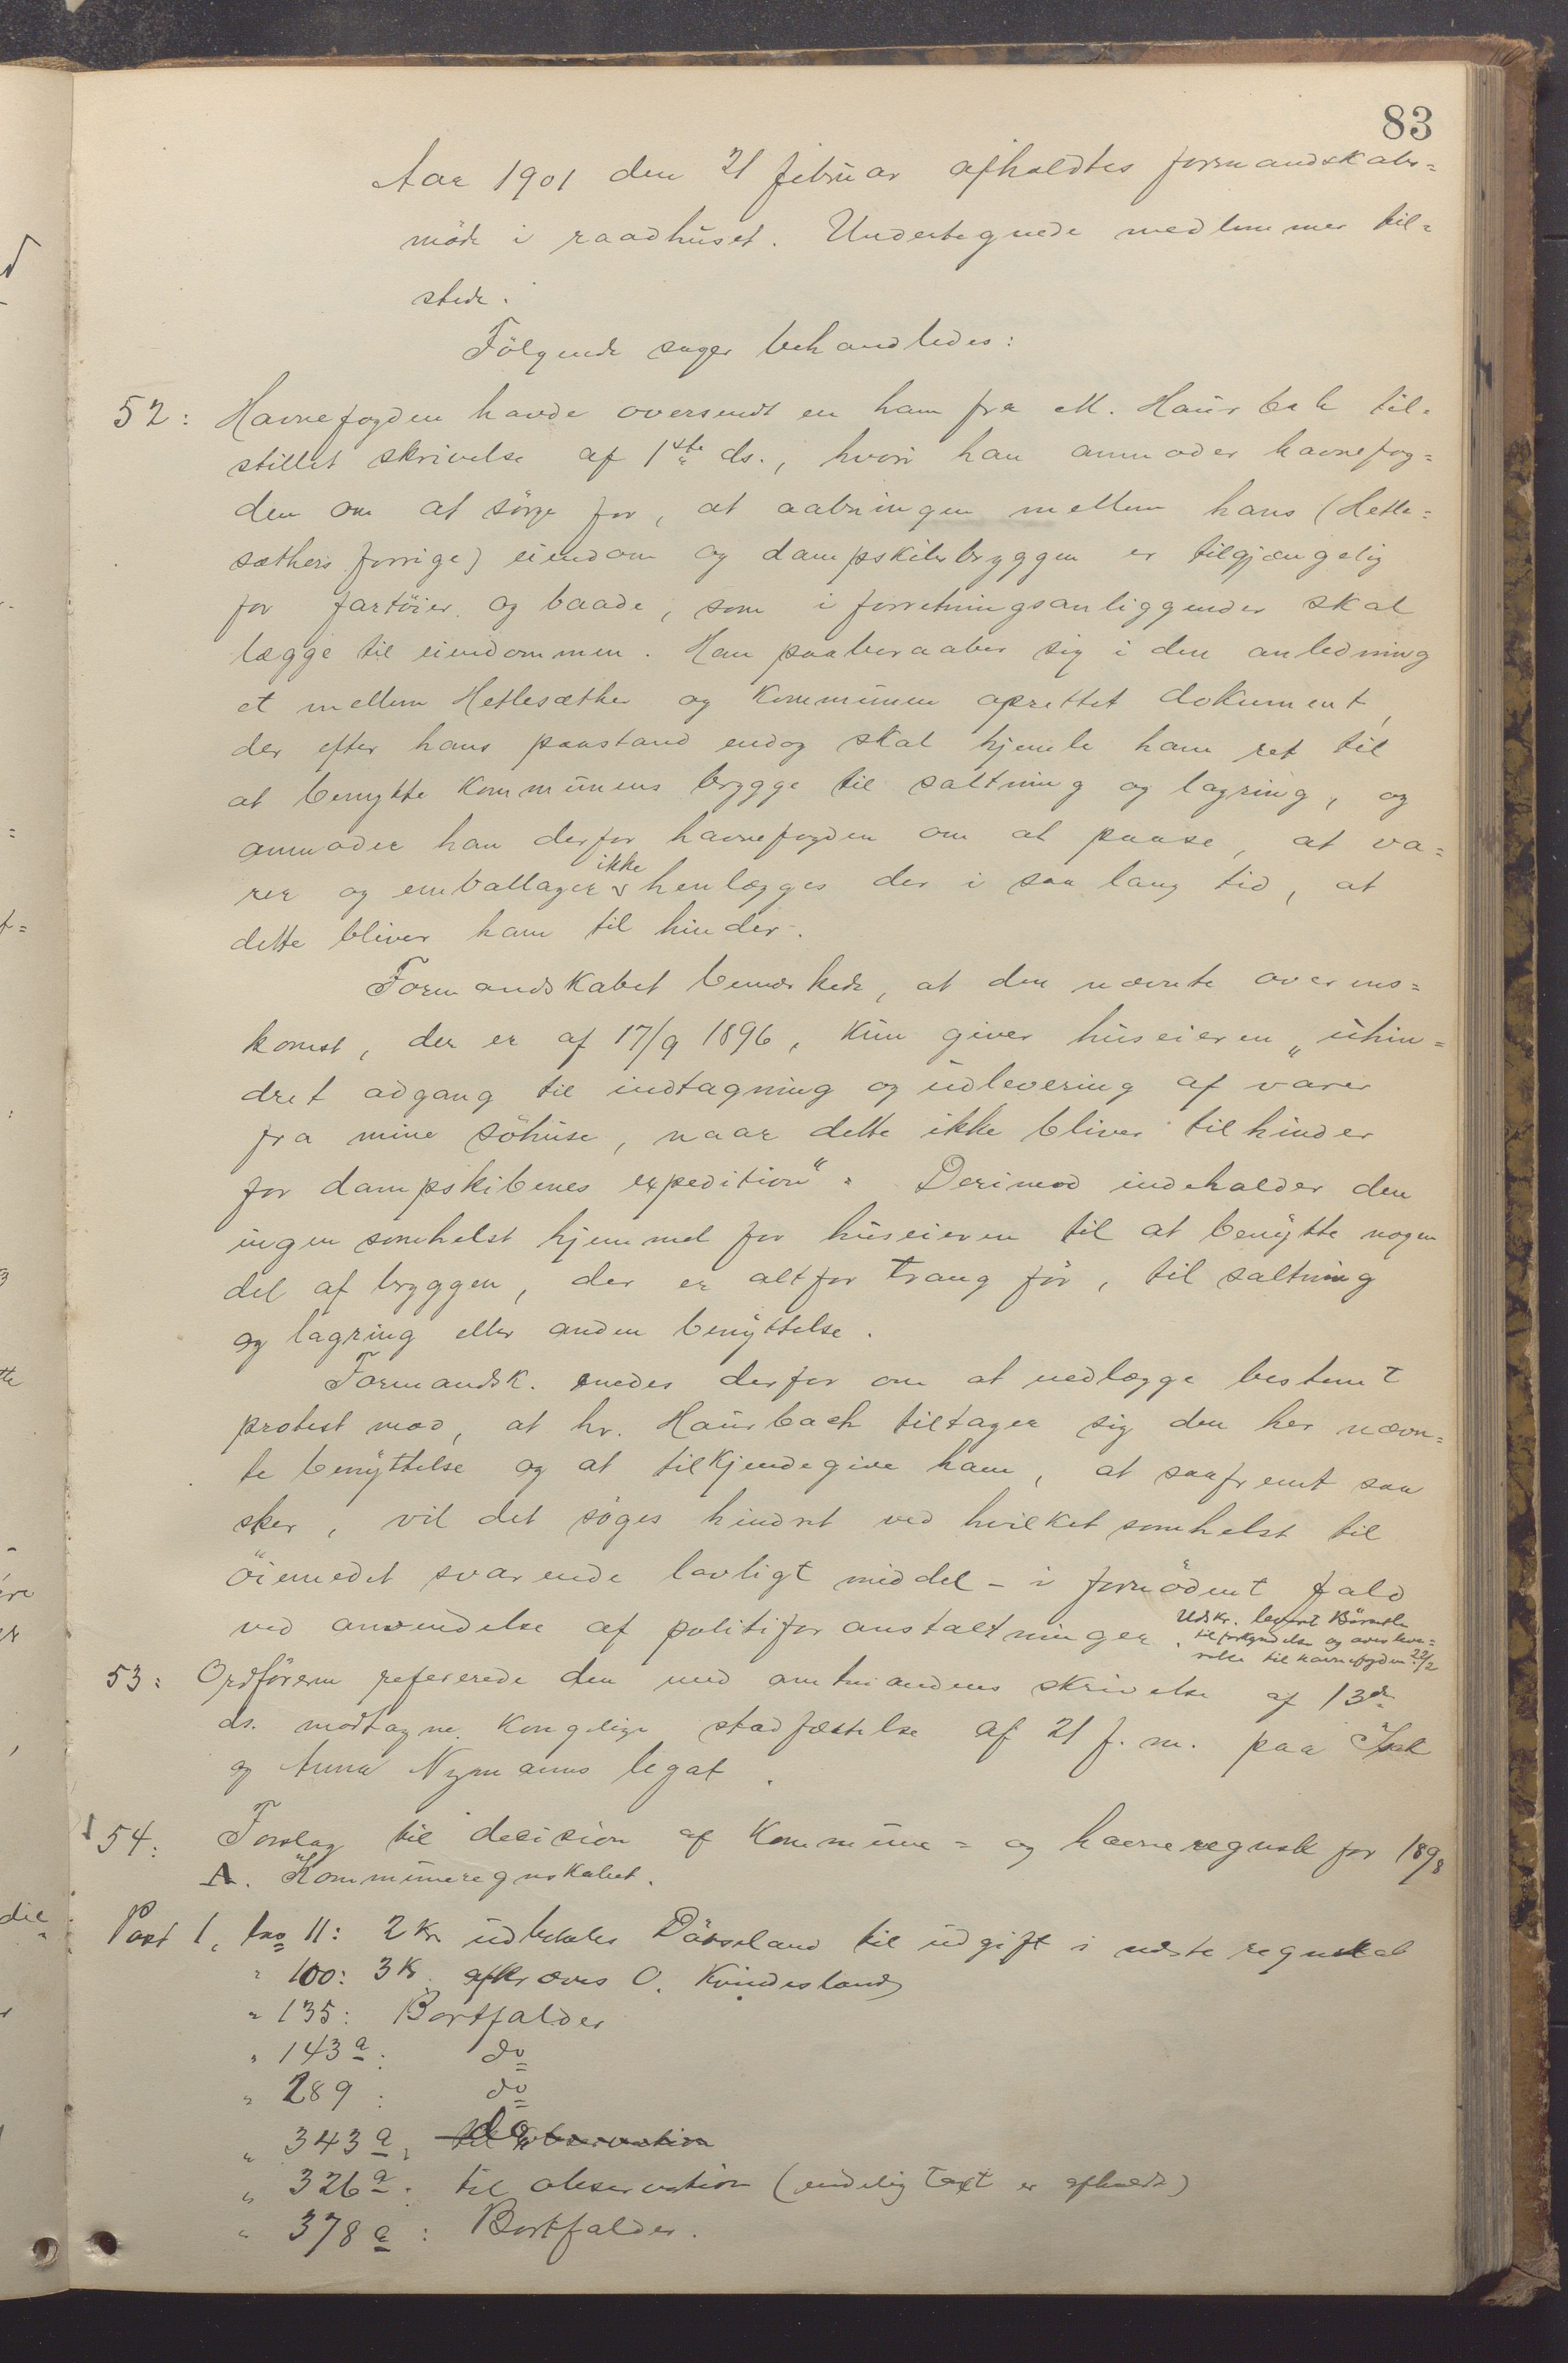 83
Aar 1901 den 21 februar afholdtes formandskabs=
möde i raadhuset. Undertegnede medlemmer til=
stede.
Fölgende sager behandledes:
52: Havnefogden havde oversendt en ham fra M. Haurbak til=
stillet skrivelse af 1ste ds., hvori han anmoder havnefog=
den om at sörge for, at aabningen mellem hans (Hetle=
sæthers forrige) eiendom og dampskibsbryggen er tilgjængelig
for fartöier og baade, som i forretningsanliggender skal
lægge til eiendommen. Han paaberaaber sig i den anledning
et mellem Hetlesæther og kommunen oprettet dokument,
der efter hans paastand endog skal hjemle ham ret til
at benytte kommunens brygge til saltning og lagring, og
anmoder han derfor havnefogden om at paase, at va=
rer og emballager ikke henlægges der i saa lang tid, at
dette bliver ham til hinder.
Formandskabet bemærkede, at den nævnte overens=
komst, der er af 17/9 1896, kun giver huseieren „uhin=
dret adgang til indtagning og udlevering af varer
fra mine söhuse, naar dette ikke bliver til hinder
for dampskibenes expedition“. Derimod indeholder den
ingen somhelst hjemmel for huseieren til at benytte nogen
del af bryggen, der er altfor trang för, til saltning
og lagring eller anden benyttelse.
Formandsk. enedes derfor om at nedlægge bestemt
protest mod, at hr. Haurbach tiltager sig den her nævn=
te benyttelse og at tilkjendegive ham, at saafremt saa
sker, vil det söges hindret ved hvilketsomhelst til
öiemedet svarende lovligt middel - i fornödent fald
ved anvendelse af politiforanstaltninger.
Udskr. levert
til forkyndelse og
til havnefogden 22/2
53: Ordföreren refererede den med amtmandens skrivelse af 13de
ds. modtagne kongelige stadfæstelse af 21 f. m. paa
og Anna Nymanns legat.
54: Forslag til decision af kommune= og havneregnsk for 1898
A. Kommuneregnskabet.
Post 1, lno 11: 2 Kr udbetales til udgift i næste regnskab
" 100: 3 Kr. afkræves O. Kvindesland
" 135: Bortfalder
" 143 a: do
" 289: do
" 343 a: do
" 326 a: til observation (endelig taxt er afholdt)
" 378 a: Bortfalder.